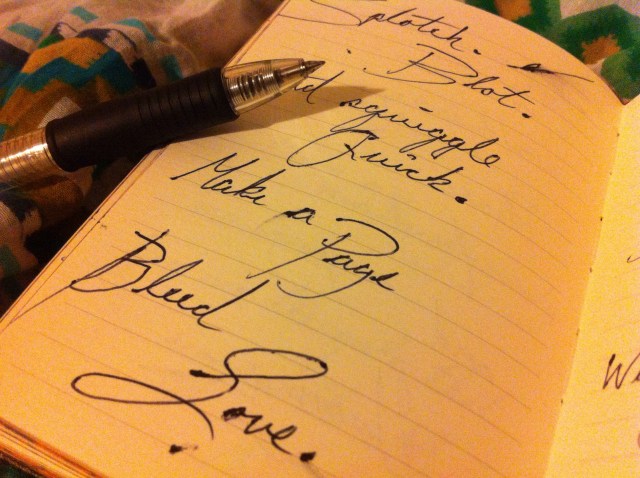 Splotch. a
Blot.
squiggle
Quick.
Make a
Page
Bleed
Love.